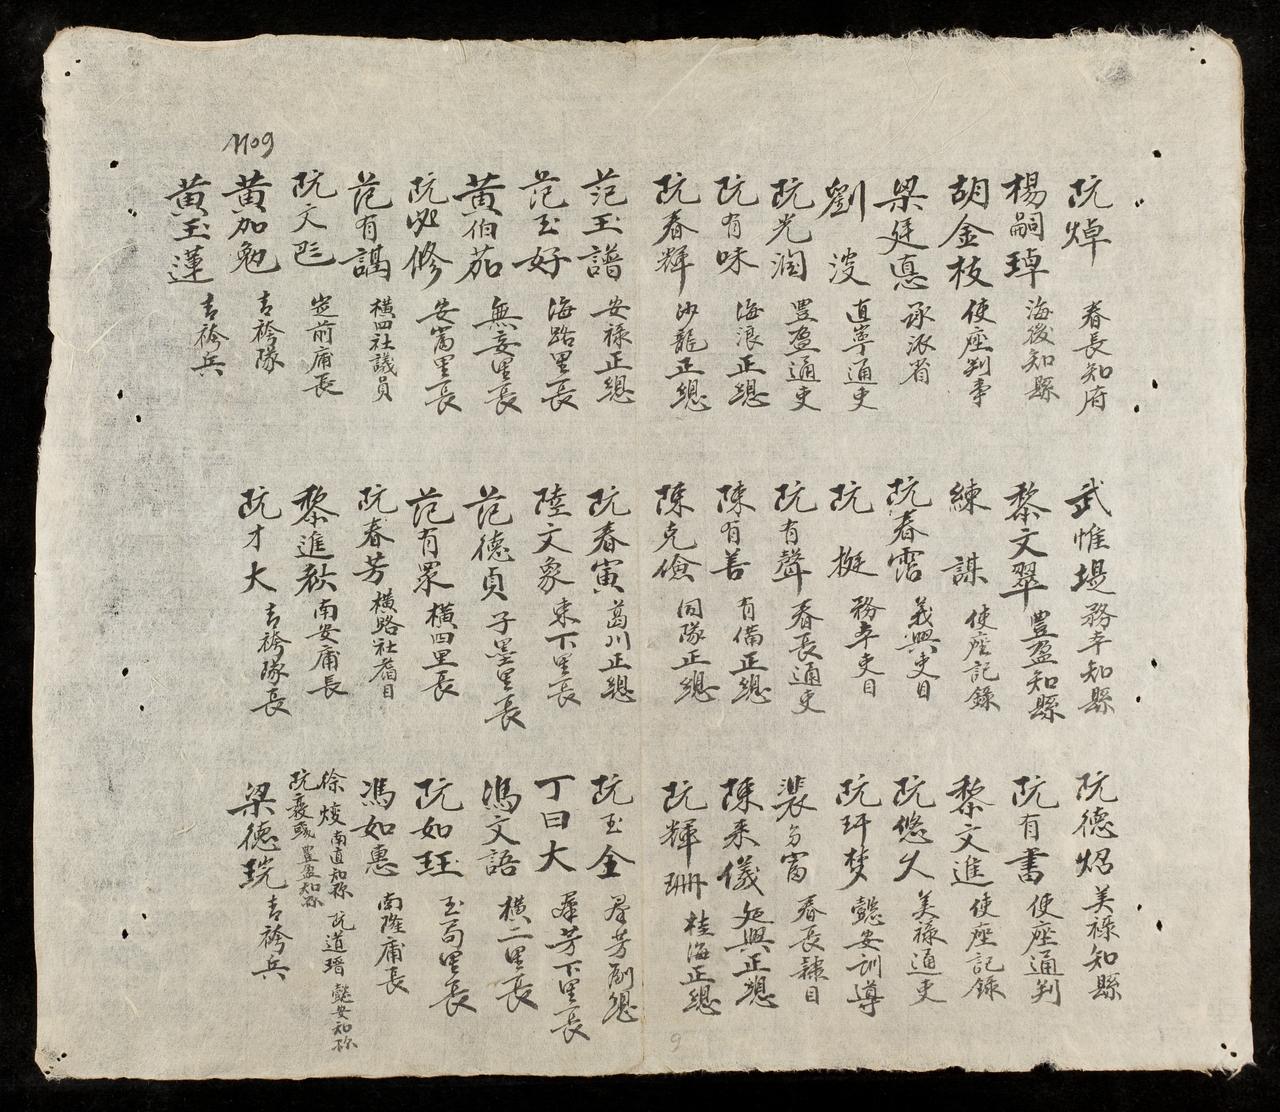 1109
阮焯 春長知府
楊嗣琸 海後知縣
胡金枝 使座判事
梁廷 承派省
劉波 直寧通吏
阮光潤 豊盈通吏
阮有味 海浪正總
阮春輝 沙龍正總
范玉譜 安祿正總
范玉好 海路里長
黃伯茄 無妄里長
阮必修 安富里長
范有謀 橫四社議員
阮文 定前庸長
黃加勉 吉袴隊
黃玉蓮 吉袴兵
武惟堤 務本知縣
黎文翠 豊盈知縣
練謀 使座記錄
阮春霑 義興吏目
阮挺 務本吏目
阮有聲 春長通吏
陳有善 有備正總
陳克儉 同隊正總
阮春寅 葛川正總
陸文象 東下里長
范德貞 子墨里長
范有眾 橫四里長
阮春芳 橫路社耆目
黎進秋 南安庸長
阮才大 吉袴隊長
阮德炤 美祿知縣
阮有書 使座通判
黎文進 使座記錄
阮悠久 美祿通吏
阮玕梦 懿安訓導
裴富 春長隸目
陳來儀 延興正總
阮輝珊 桂海正總
阮玉全 群芳副總
丁曰大 群芳下里長
馮文語 橫二里長
阮如玨 玉局里長
馮如惠 南隆庸長
徐焌 南直知 阮道瑨 懿安知
阮 豊盈知
梁德珖 吉袴兵
9